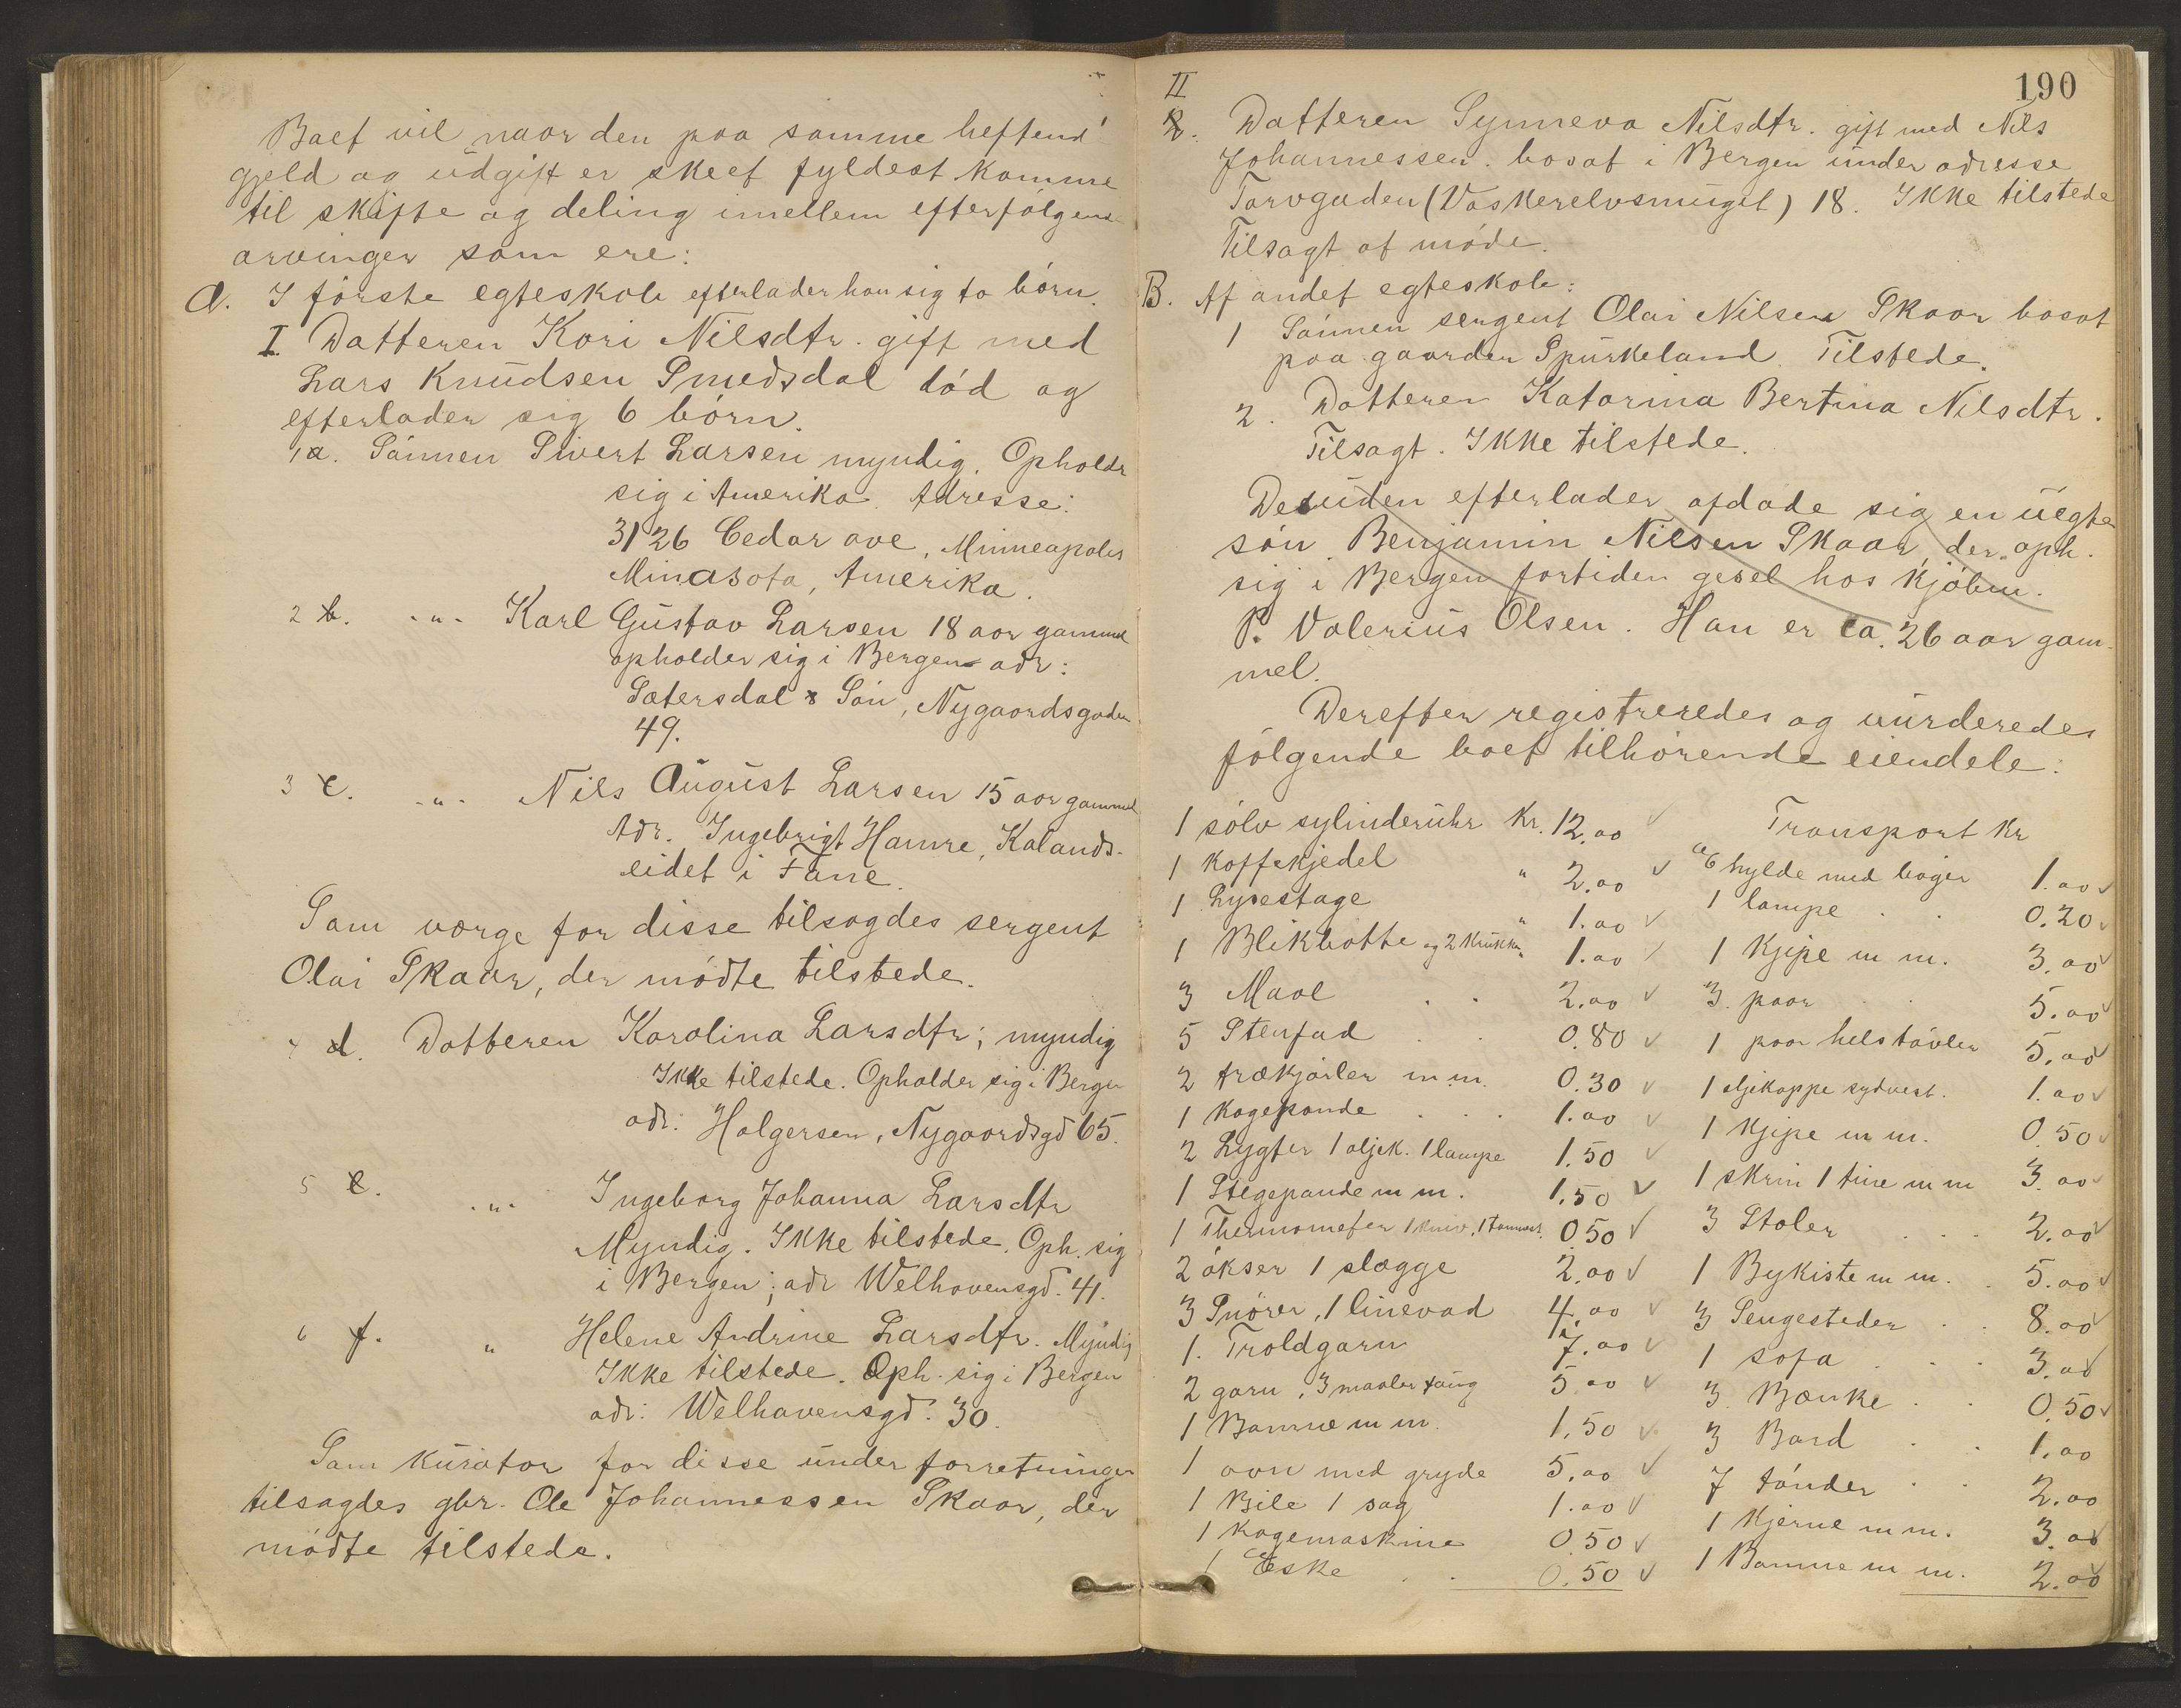 Boet vil naar den paa samme heftend
gjeld og udgift er skeet fyldest komme
til skifte og deling imellem efterfølgend
arvinger som ere:
A. I første egteskab efterlader han sig to børn.
I. Datteren Kari Nilsdtr. gift med
Lars Knudsen Smedsdal død og
efterlader sig 6 børn.
1 a. Sønnen Sivert Larsen myndig. Opholdr
sig i Amerika. Adresse:
3126 Cedar ave, Minneapolis
Minasota, Amerika.
2 b. -"- Karl Gustav Larsen 18 aar gammel
opholder sig i Bergen adr:
Sætersdal & Søn, Nygaardsgaden
49.
3 c. -"- Nils August Larsen 15 aar gammel
Adr. Ingebrigt Hamre, Kalands-
eidet i Fane.
Som værge for disse tilsagdes sergent
Olai Skaar, der mødte tilstede.
4 d. Datteren Karolina Larsdtr; myndig
Ikke tilstede. Opholder sig i Bergen
adr: Holgersen, Nygaardsgd 65.
5 e. -"- Ingeborg Johanna Larsdtr
Myndig. Ikke tilstede. Oph. sig
i Bergen; adr Welhavensgd. 41.
6 f. " Helene Andrine Larsdtr. Myndig
Ikke tilstede. Oph. sig i Bergen
adr: Welhavensgd. 30.
Som kurator for disse under forretningen
tilsagdes gbr. Ole Johannessen Skaar, der
mødte tilstede.
190
II
Datteren Synneva Nilsdtr. gift med Nils
Johannessen. bosat i Bergen under adresse
Torvgaden (Vaskerelvsmuget) 18. Ikke tilstede
Tilsagt at møde.
B. Af andet egteskab:
1 Sønnen sergent Olai Nilsen Skaar bosat
paa gaarden Spurkeland. Tilstede.
2. Datteren Katarina Bertina Nilsdtr.
Tilsagt. Ikke tilstede.
Desuden efterlader afdøde sig en uegte
søn Benjamin Nilsen Skaar, der oph.
sig i Bergen fortiden gesel hos kjøbm.
P. Valerius Olsen. Han er ca. 26 aar gam-
mel.
Derefter registreredes og vurderedes
følgende boet tilhørende eiendele:
1 sølv sylinderuhr Kr. 12.00
1 Kaffekjedel " 2.00
1 Lysestage " 1.00
1 Blikbøtte og 2 Krukker " 1.00
3 Maal . . 2.00
5 Stenfad . . 0.80
2 trækjørler m.m. 0.30
1 Kagepande . . . 1.00
2 Lygter 1 oljek. 1 lampe 1.50
1 Stegepande m m. 1.50
1 Thermometer 1 kniv, 1 0 50
2 økser 1 slægge 2.00
3 Snører, 1 linevad 4.00
1. Troldgarn 7.00
2 garn, 3 maaler taug 5 00
1 Bamme m m. 1.50
1 ovn med gryde 5.00
1 Bile 1 sag 1.00
1 Kagemaskine 0.50
1 Eske . . 0.50
Transport Kr
hylde med bøger 1.00
1 lampe . . 0.20
1 Kjipe m m. 3.00
3. paar . . 5.00
1 paar helstøvler 5.00
1 oljekappe sydvest. 1.00
1 Kjipe m m. 0.50
1 skrin 1 tine m m 3.00
3 Stoler . . . 2.00
1 Bykiste m m. . 5.00
3 Sengesteder . . 8.00
1 sofa . . . 3.00
3. Bænke . . 0.50
3 Bord . . 1.00
7 tønder . . 2.00
1 Kjerne m m. 3.00
1 Bamme m m. 2.00